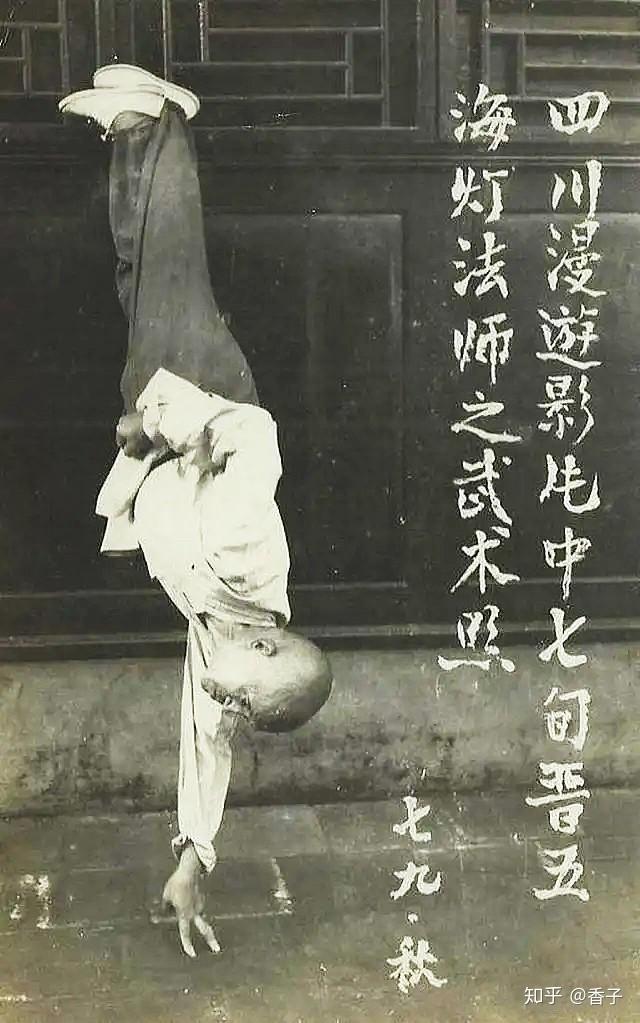 四川漫遊影片中七旬晋五
海灯法师之武术照
七九·秋
知乎 @香子